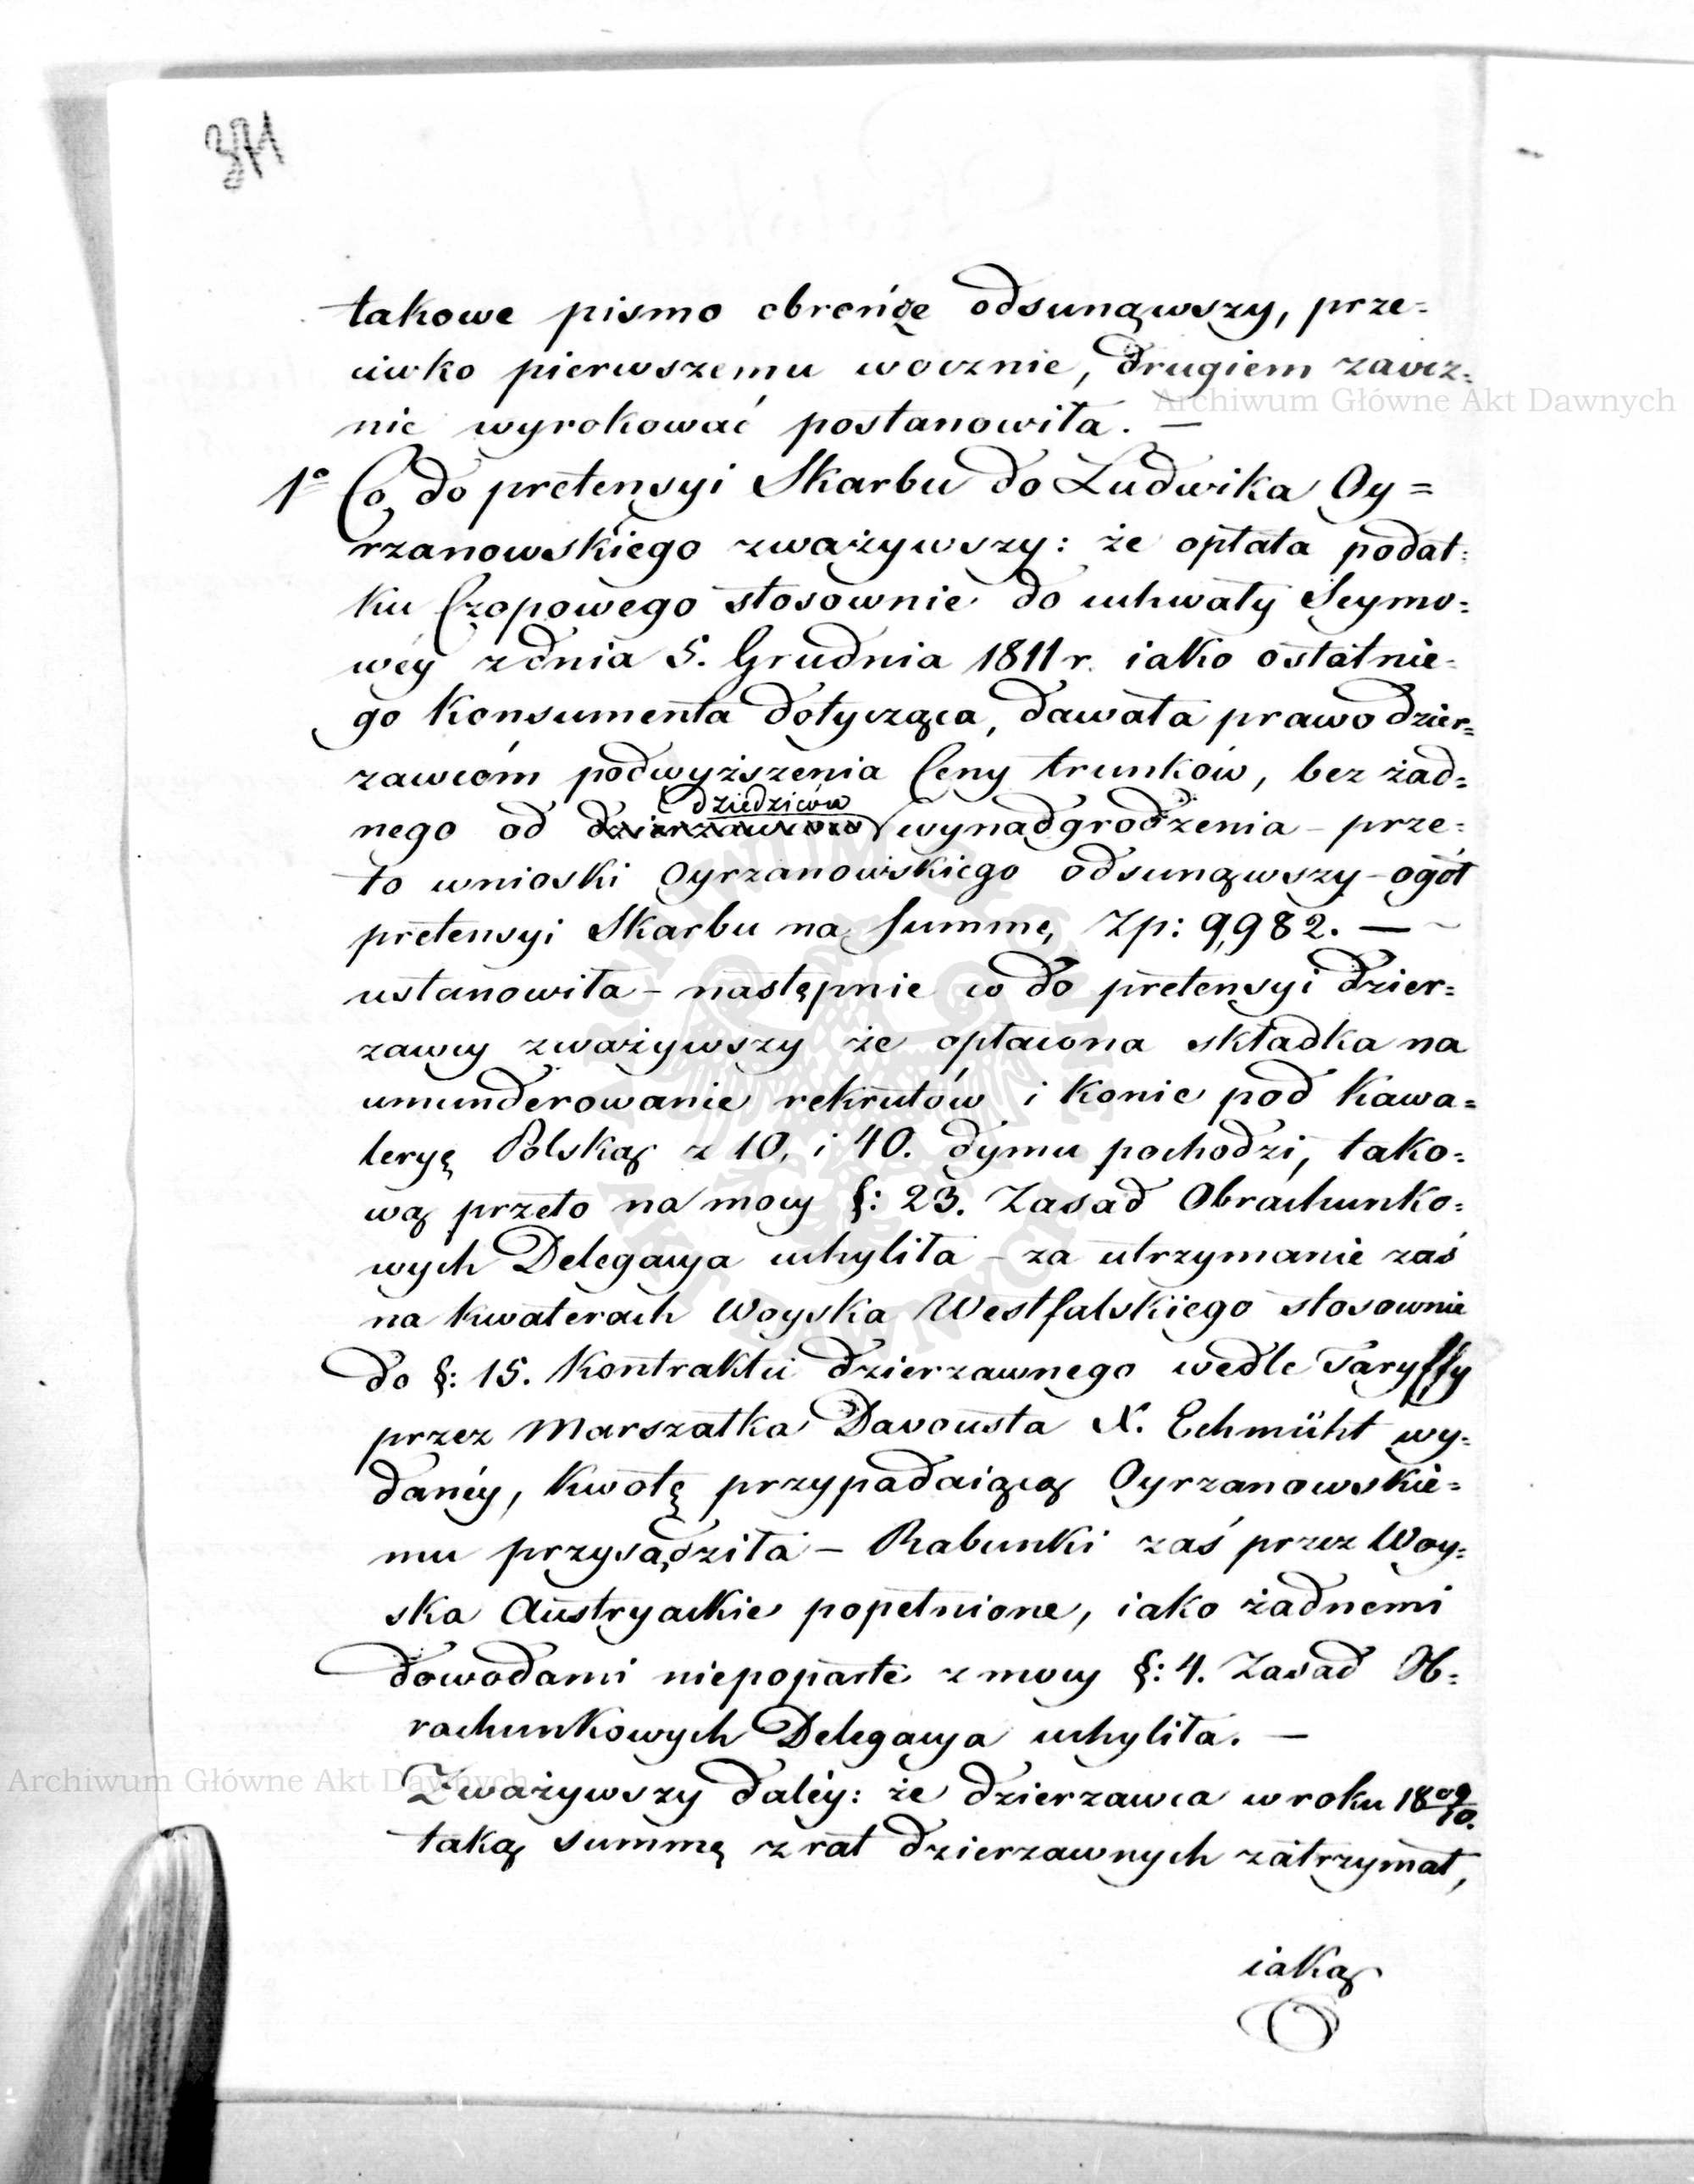 371
takowe pismo obrończe odsunąwszy, prze=
ciwko pierwszemu wocznie, drugiem zaocz=
nie wyrokować postanowiła. —
1° Co do pretensyi Skarbu do Ludwika Oy=
rzanowskiego zważywszy: że opłata podat=
ku Czopowego stosownie do uchwały Seymo=
wéy z dnia 5. Grudnia 1811 r. iako ostatnie=
go Konsumenta dotycząca, dawała prawo dzier=
zawcóm podwyższenia Ceny trunków, bez żad=
dziedziców
nego od dzierzawców wynadgrodzenia – prze=
to wnioski Oyrzanowskiego odsunąwszy – ogół
pretensyi Skarbu na Summę Zp: 9,982. —
ustanowiła – następnie co do pretensyi dzier=
zawcy zważywszy że opłacona składka na
umunderowanie rekrutów i Konie pod Kawa=
leryę Polską z 10, i 40. dymu pochodzi, tako=
wą przeto na mocy §: 23. Zasad Obrachunko=
wych Delegacya uchyliła – za utrzymanie zaś
na kwaterach Woyska Westfalskiego stosownie
do §: 15. Kontraktu dzierzawnego wedle Taryffy
przez Marszałka Davousta X. Echmühl wy=
danéy, Kwotę przypadaiącą Oyrzanowskie=
mu przysądziła – Rabunki zaś przez Woy=
ska Austryackie popełnione, iako żadnemi
dowodami niepoparte z mocy §: 4. Zasad Ob=
rachunkowych Delegacya uchyliła. —
Zważywszy daléy: że dzierzawca w roku 1809/10.
taką summę z rat dzierzawnych zatrzymał,
iaką
Archiwum Główne Akt Dawnych
Archiwum Główne Akt Dawnych